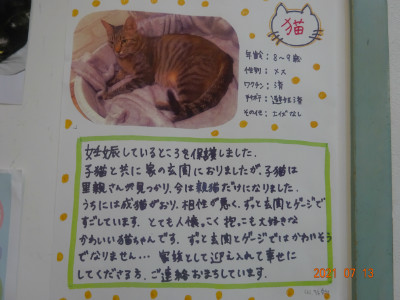 猫
年齢：8～9歳
性別：メス
ワクチン：済
手術：避妊済
その他：エイズなし
妊娠しているところを保護しました。
子猫と共に家の玄関におりましたが、子猫は
里親さんが見つかり、今は親猫だけになりました。
うちには成猫がおり、相性が悪く、ずっと玄関とゲージで
すごしています。とても人懐っこく抱っこも大好きな
かわいい猫ちゃんです。ずっと玄関とゲージではかわいそう
でなりません… 家族として迎え入れて幸せに
してくださる方、ご連絡お待ちしています。
2021 07 13